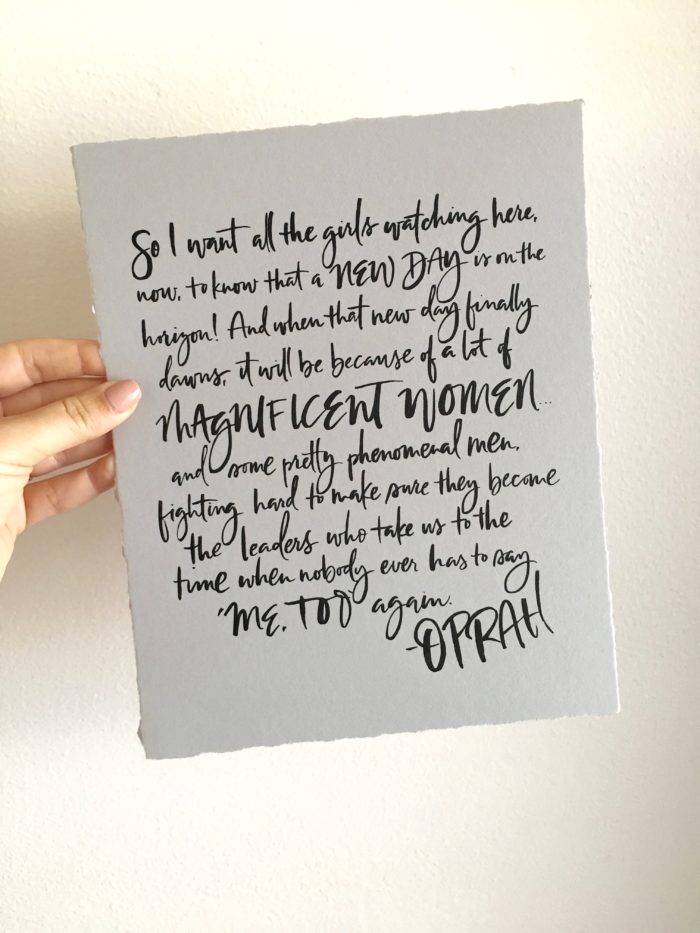 So I want all the girls watching here,
now, to know that a NEW DAY is on the
horizon! And when that new day finally
dawns, it will be because of a lot of
MAGNIFICENT WOMEN...
and some pretty phenomenal men,
fighting hard to make sure they become
the leaders who take us to the
time when nobody ever has to say
"ME, TOO" again.
-OPRAH